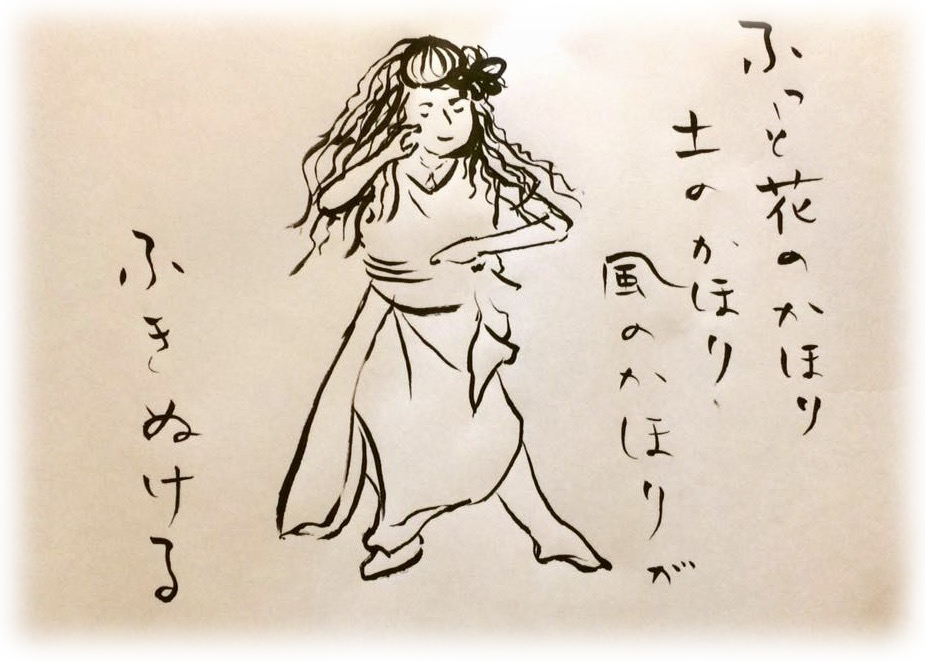 ふっと花のかほり
土のかほり、
風のかほりが
ふきぬける